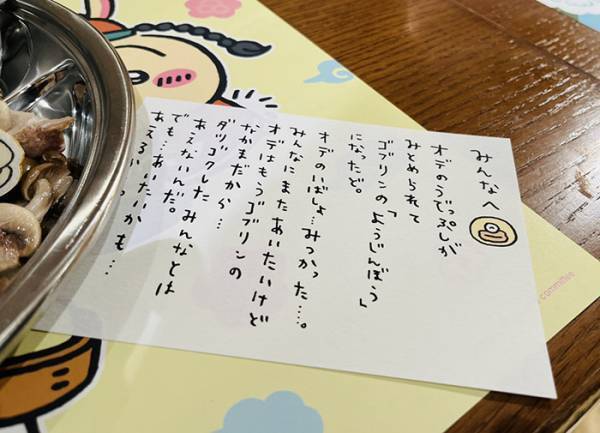 みんなへ
オデのうでっぷしが
みとめられて
ゴブリンの「ようじんぼう」
になったど。
オデのいばしょ…みつかった…。
みんなにまたあいたいけど
オデはもうゴブリンの
なかまだから…
ダツゴクしたみんなとは
あえないんだ。
でも…あいたいかも…
committee